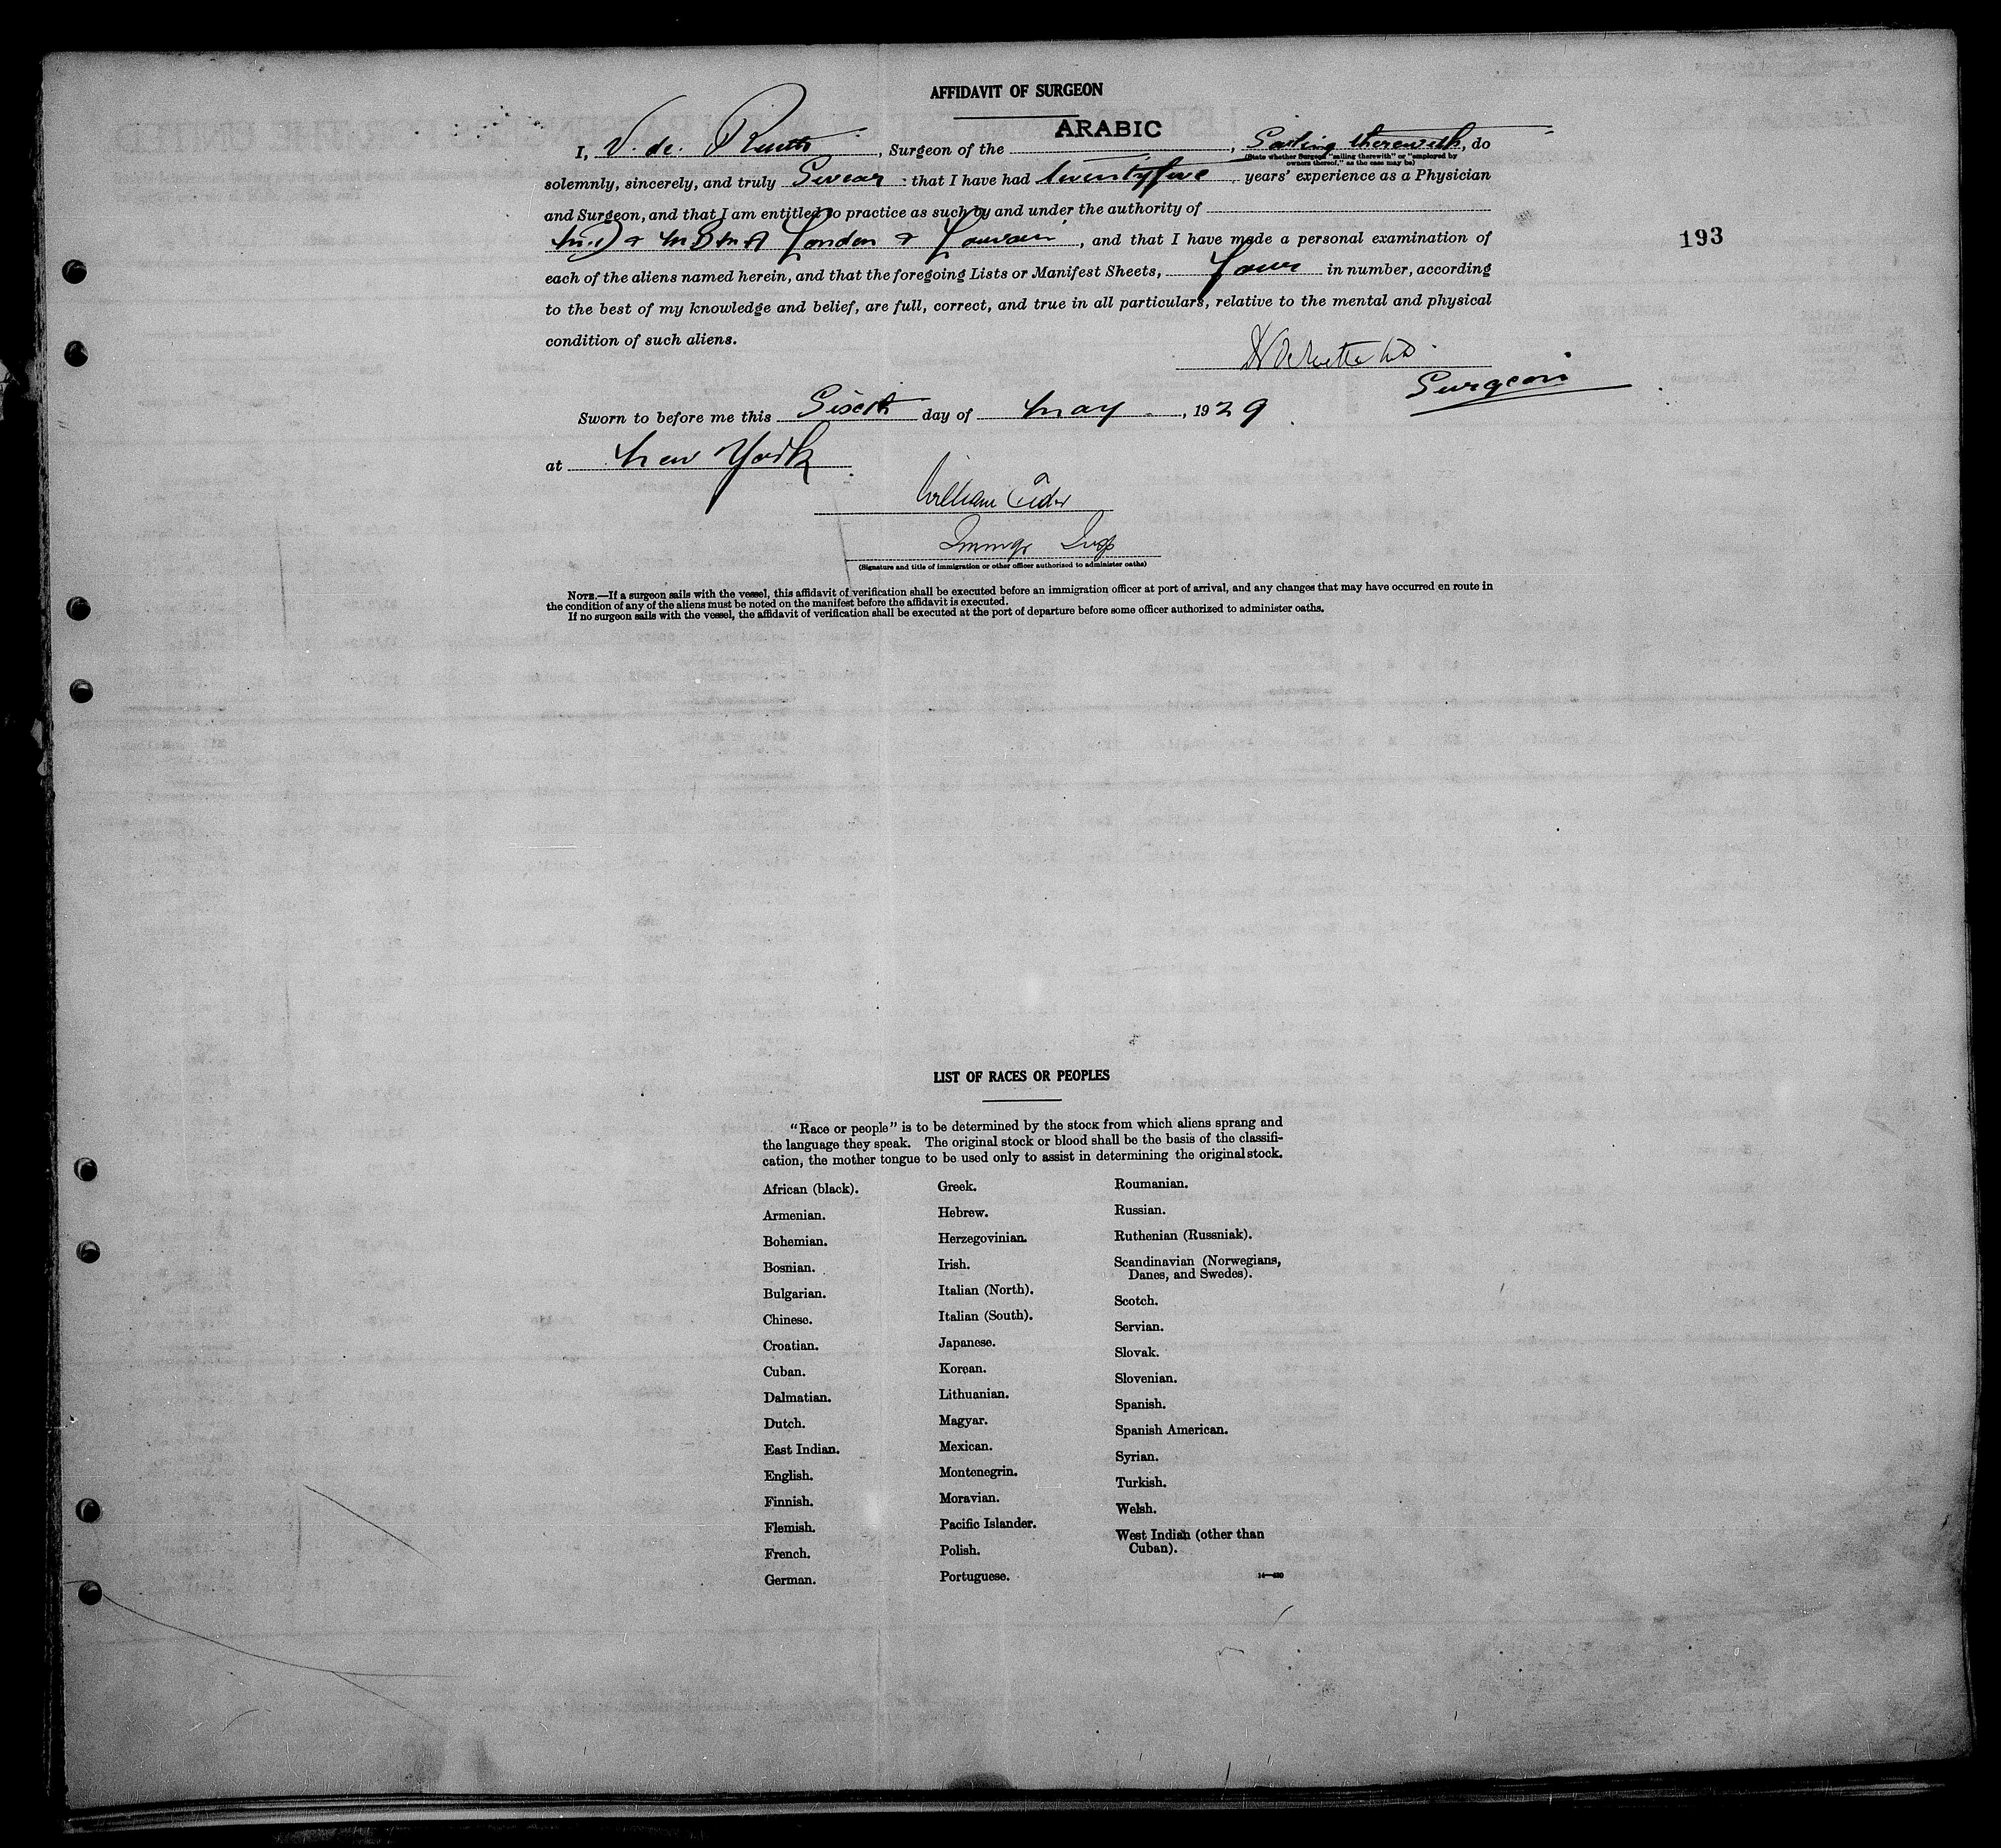 AFFIDAVIT OF SURGEON
ARABIC
I, V. de , Surgeon of the , Sailing therewith, do
(State whether Surgeon "sailing therewith" or "employed by
owners thereof," as the case may be)
solemnly, sincerely, and truly Swear that I have had twenty five years' experience as a Physician
and Surgeon, and that I am entitled to practice as such by and under the authority of
London & Louvain, and that I have made a personal examination of
193
each of the aliens named herein, and that the foregoing Lists or Manifest Sheets, four in number, according
to the best of my knowledge and belief, are full, correct, and true in all particulars, relative to the mental and physical
condition of such aliens.
Surgeon
Sworn to before me this Sixth day of May, 1929
at New York
William
Immgr Insp
(Signature and title of immigration or other officer authorized to administer oaths)
NOTE.—If a surgeon sails with the vessel, this affidavit of verification shall be executed before an immigration officer at port of arrival, and any changes that may have occurred en route in
the condition of any of the aliens must be noted on the manifest before the affidavit is executed.
If no surgeon sails with the vessel, the affidavit of verification shall be executed at the port of departure before some officer authorized to administer oaths.
LIST OF RACES OR PEOPLES
"Race or people" is to be determined by the stock from which aliens sprang and
the language they speak. The original stock or blood shall be the basis of the classifi-
cation, the mother tongue to be used only to assist in determining the original stock.
African (black).
Armenian.
Bohemian.
Bosnian.
Bulgarian.
Chinese.
Croatian.
Cuban.
Dalmatian.
Dutch.
East Indian.
English.
Finnish.
Flemish.
French.
German.
Greek.
Hebrew.
Herzegovinian.
Irish.
Italian (North).
Italian (South).
Japanese.
Korean.
Lithuanian.
Magyar.
Mexican.
Montenegrin.
Moravian.
Pacific Islander.
Polish.
Portuguese.
Roumanian.
Russian.
Ruthenian (Russniak).
Scandinavian (Norwegians,
Danes, and Swedes).
Scotch.
Servian.
Slovak.
Slovenian.
Spanish.
Spanish American.
Syrian.
Turkish.
Welsh.
West Indian (other than
Cuban).